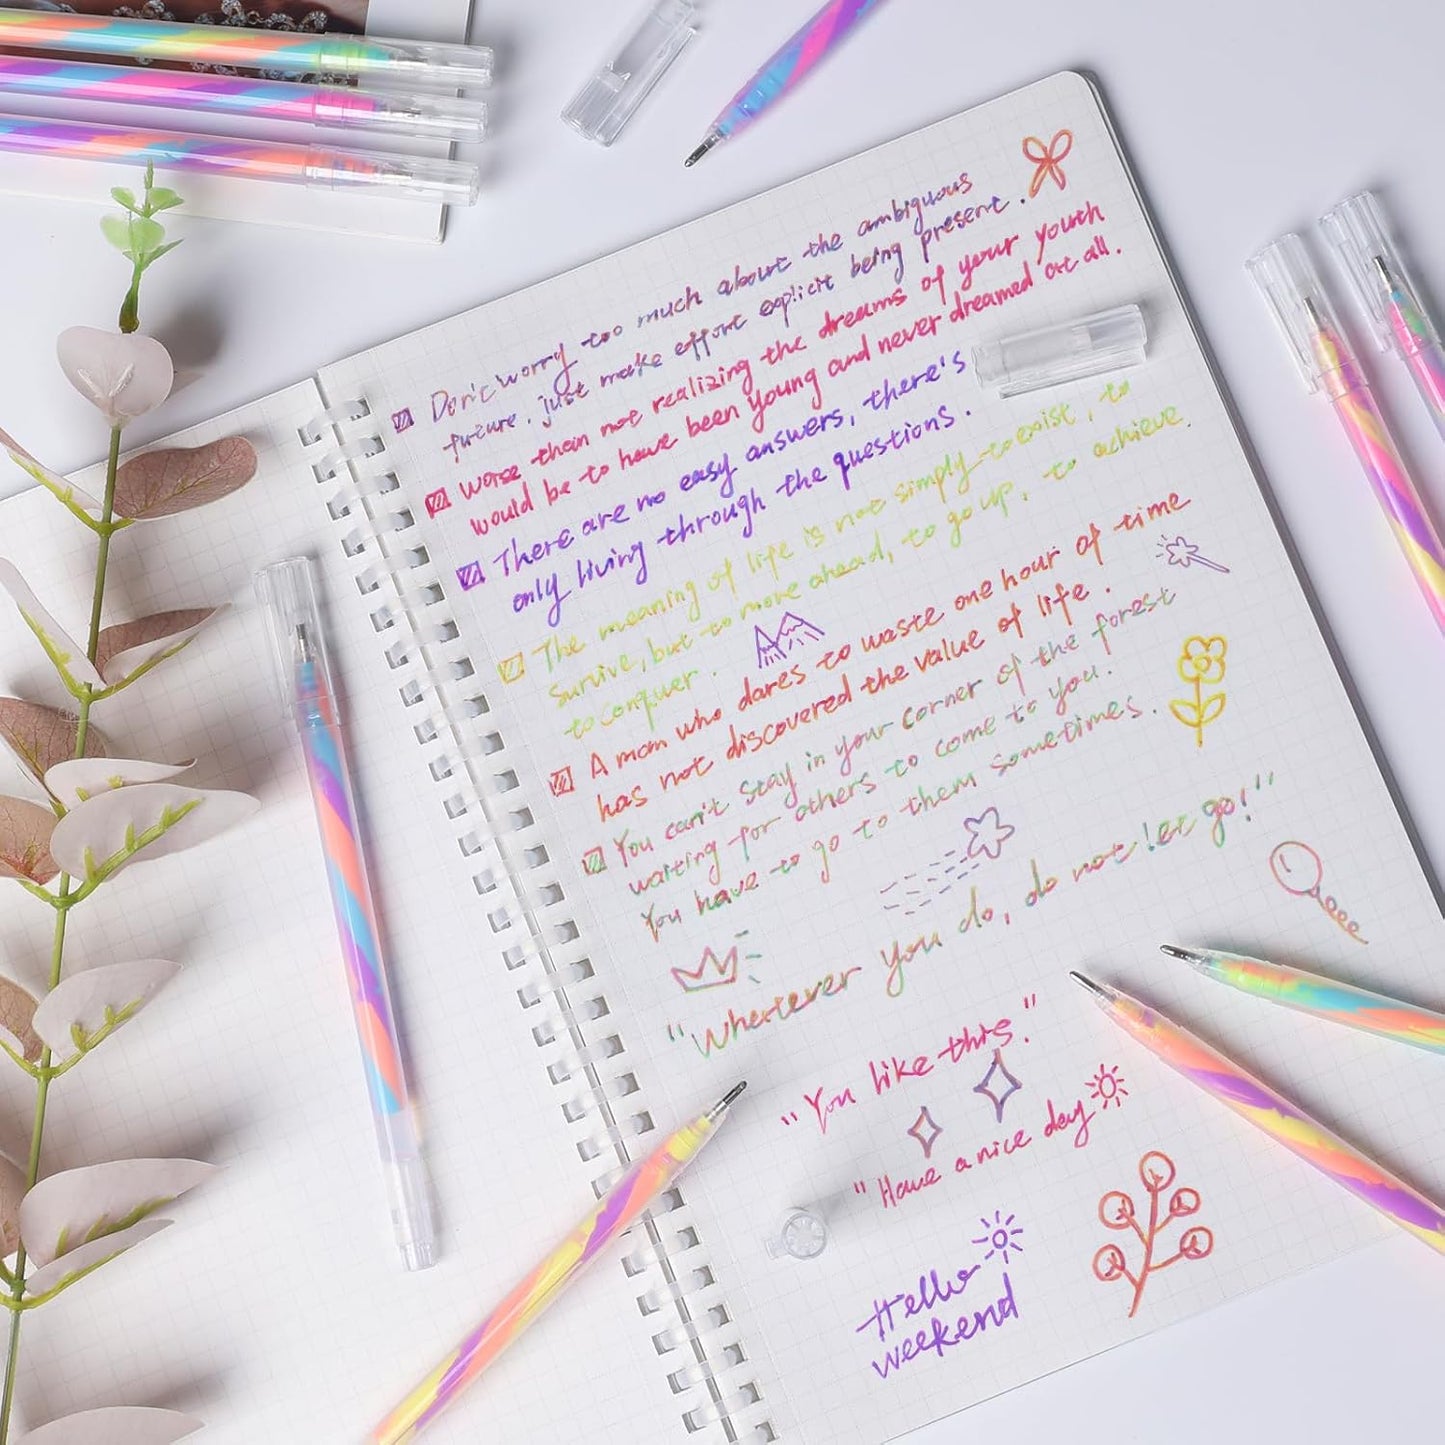 Don't worry too much about the ambiguous
future, just make effort explicit being present.
Worse than not realizing the dreams of your youth
would be to have been young and never dreamed at all.
There are no easy answers, there's
only living through the questions.
The meaning of life is not simply to exist, to
survive, but to move ahead, to go up, to achieve,
to conquer.
A man who dares to waste one hour of time
has not discovered the value of life.
You can't stay in your corner of the forest
waiting for others to come to you.
You have to go to them sometimes.
"Wherever you do, do not let go!"
"You like this."
"Have a nice day
Hello
weekend